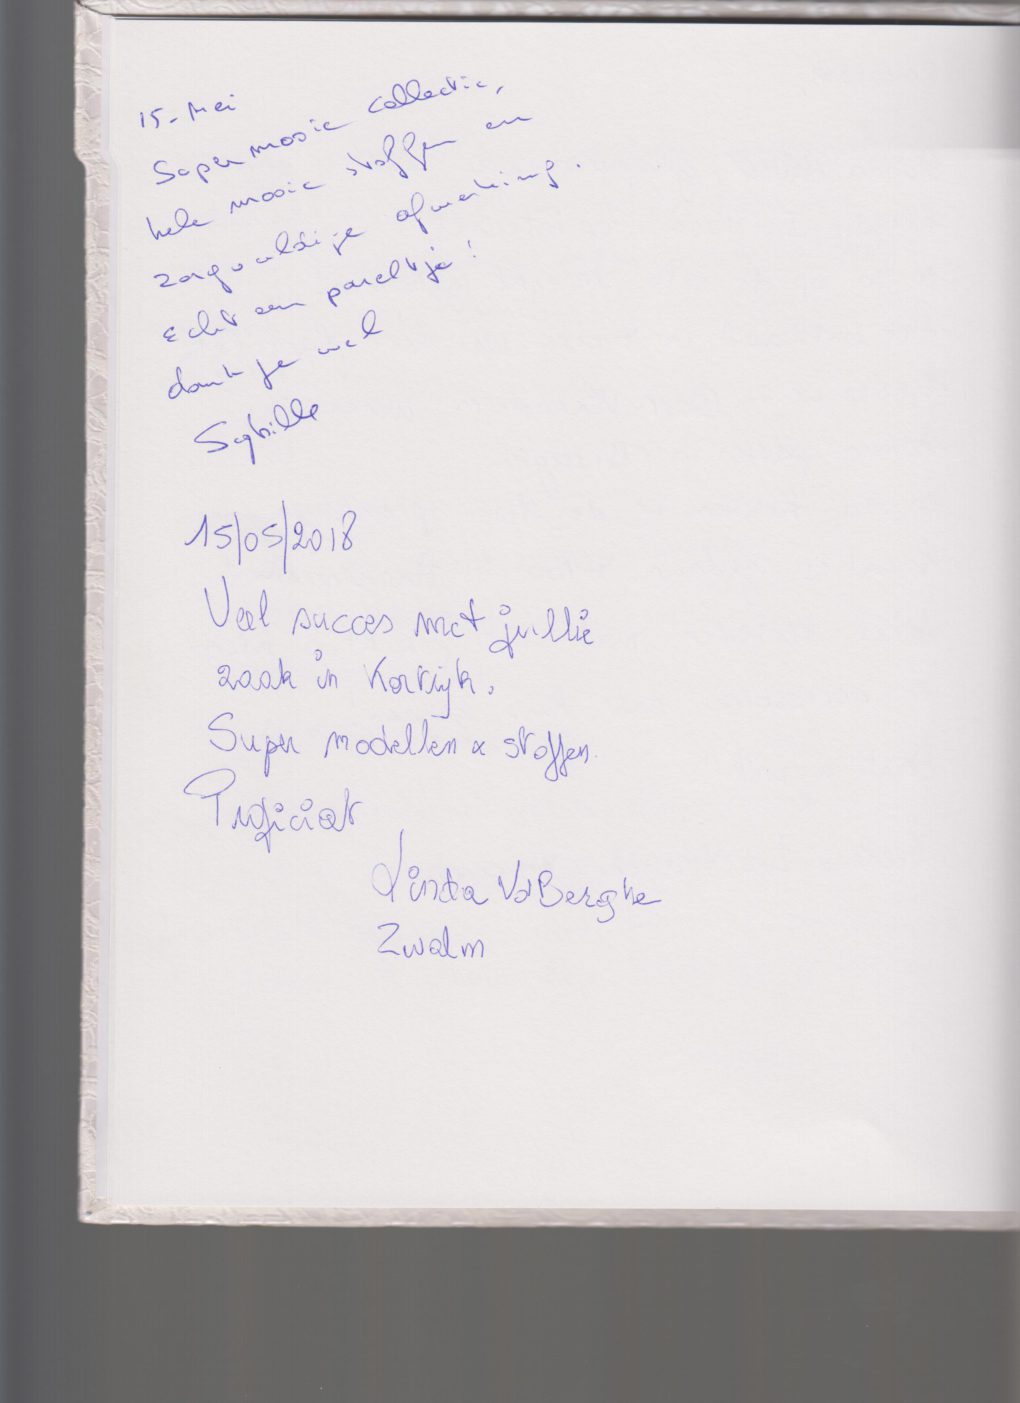 15- Mei
Super mooie collectie,
hele mooie stoffen en
zorgvuldige afwerking.
Echt een pareltje!
dank je wel
Sybille
15/05/2018
Veel succes met jullie
zaak in Kortrijk.
Super modellen & stoffen.
Proficiat
Linda VdBerghe
Zwalm